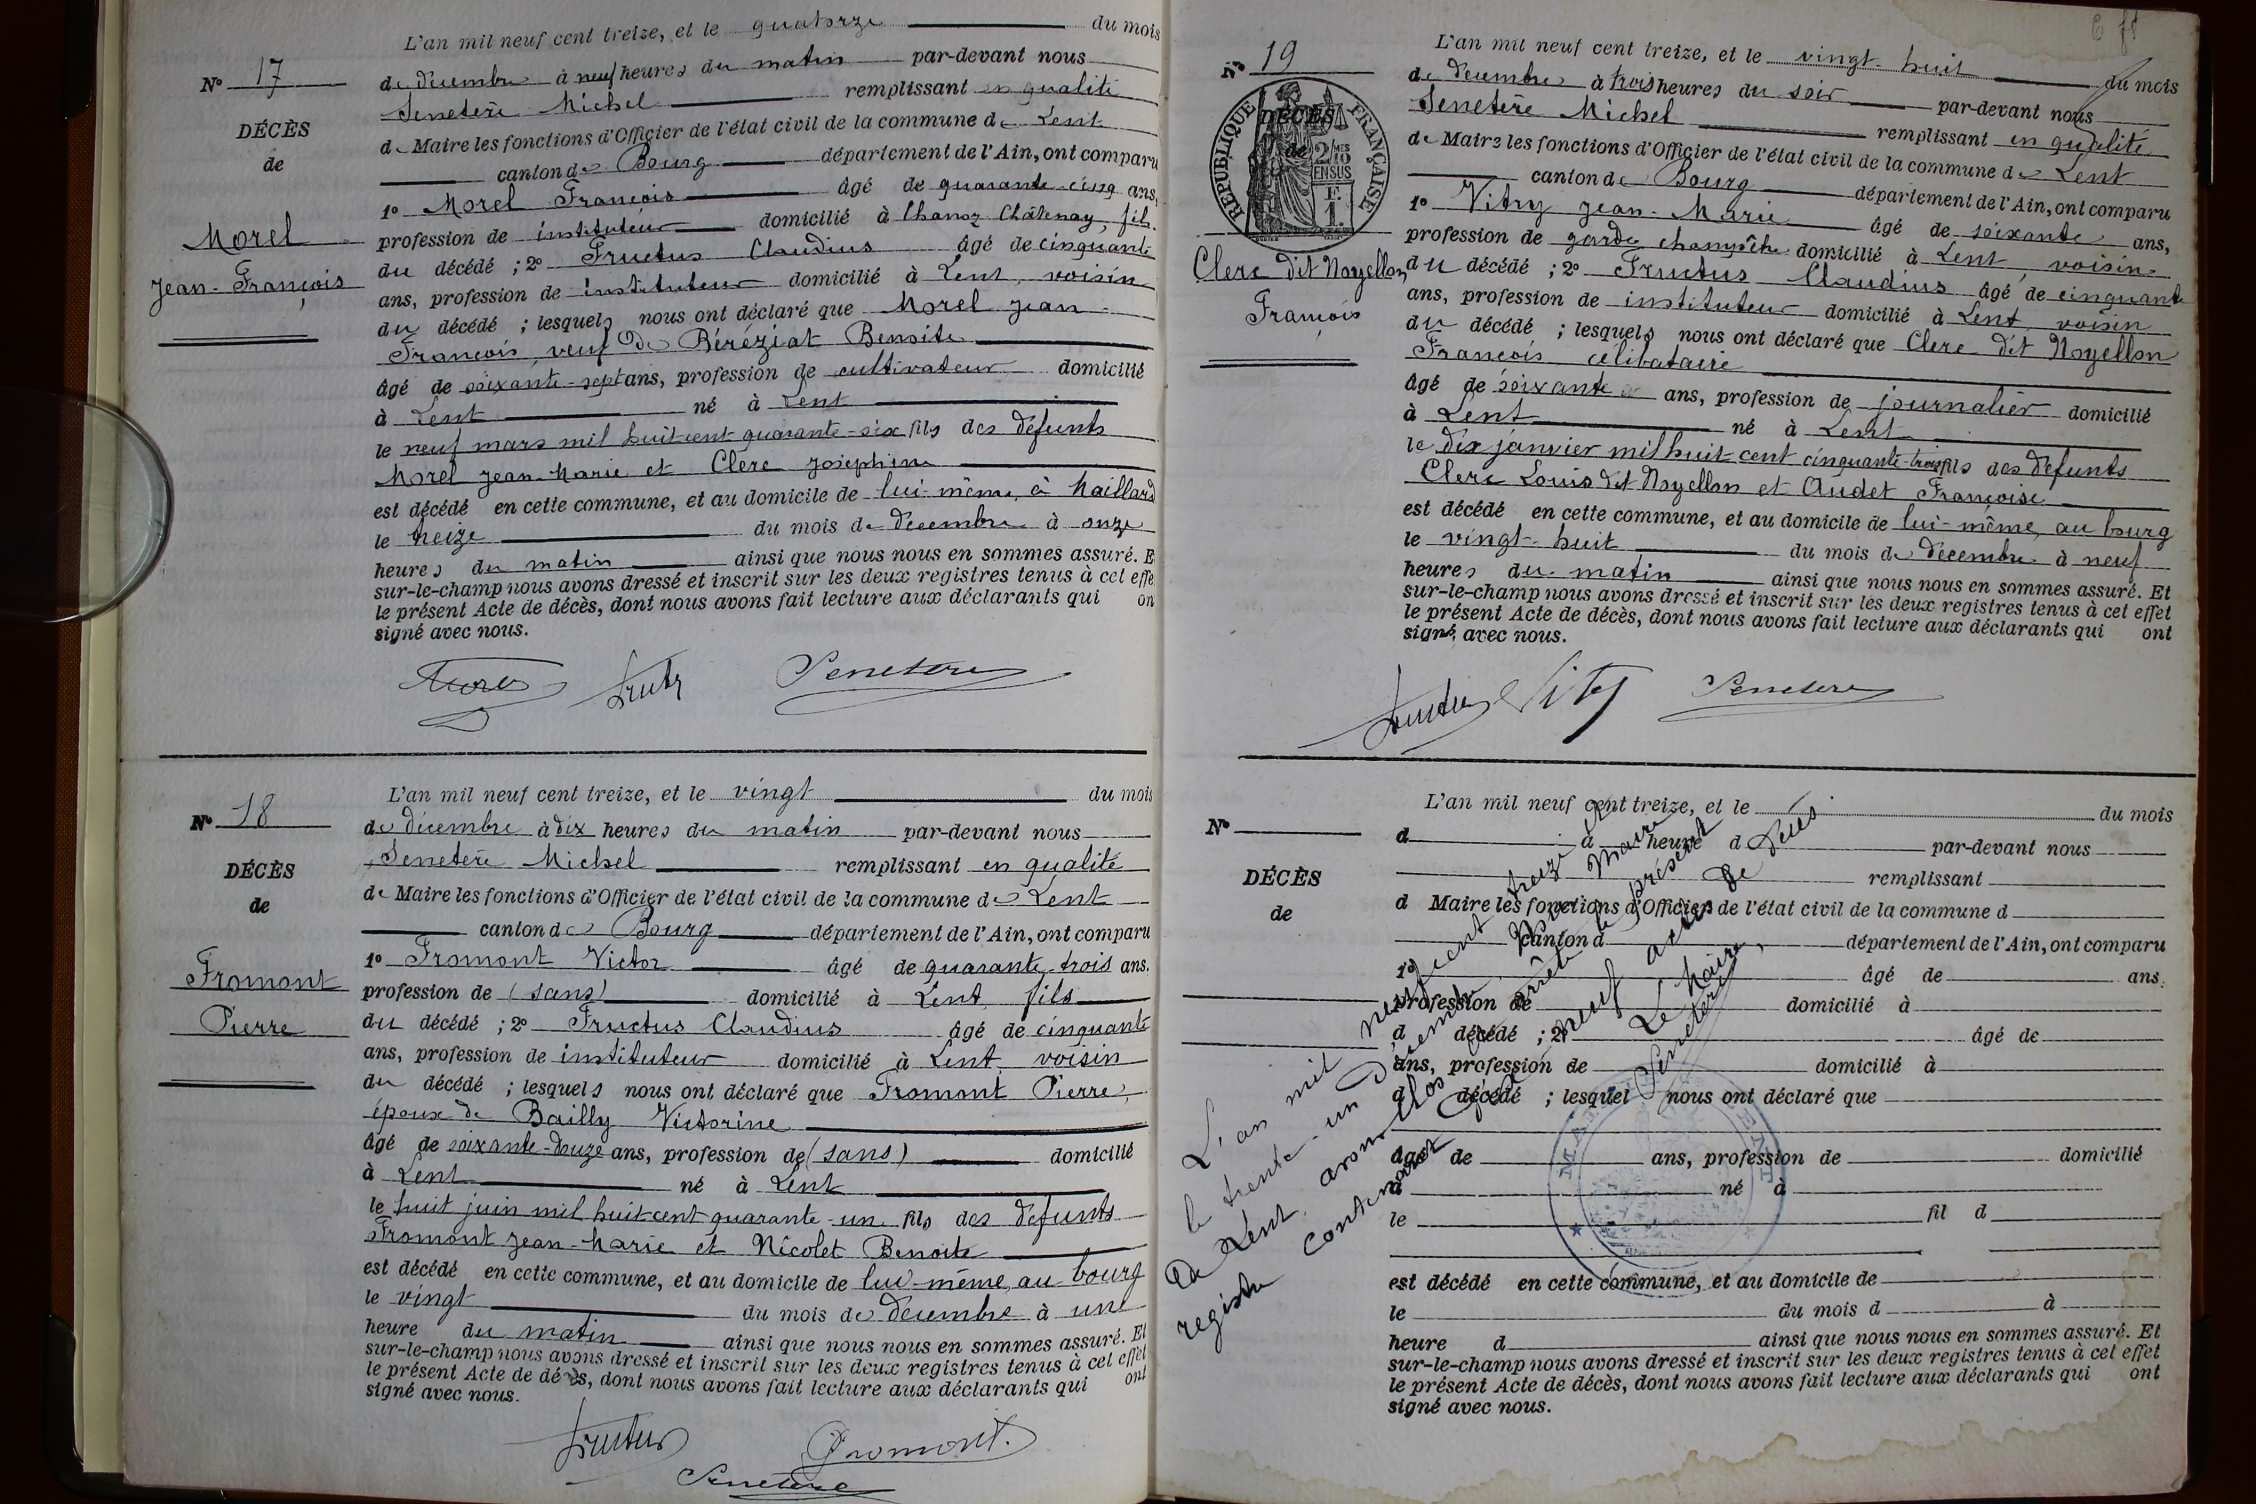 L'an mil neuf cent treize, et le quatorze du mois
N° 17
de décembre à neuf heures du matin par-devant nous
Senetère Michel remplissant en qualité
DÉCÈS
de Maire les fonctions d'Officier de l'état civil de la commune de Lent
de
canton de Bourg département de l'Ain, ont comparu
1° Morel François âgé de quarante-cinq ans,
Morel
profession de instituteur domicilié à Chanoz Châtenay, fils
du décédé ; 2° Fructus Claudius âgé de cinquante
Jean-François
ans, profession de instituteur domicilié à Lent, voisin
du décédé ; lesquels nous ont déclaré que Morel Jean
François, veuf de Béréziat Benoite
âgé de soixante-sept ans, profession de cultivateur domicilié
à Lent né à Lent
le neuf mars mil huit cent quarante-six fils des défunts
Morel Jean-Marie et Clerc Joséphine
est décédé en cette commune, et au domicile de lui-même, à Maillard
le treize du mois de décembre à onze
heures du matin ainsi que nous nous en sommes assuré. E
sur-le-champ nous avons dressé et inscrit sur les deux registres tenus à cet effe
le présent Acte de décès, dont nous avons fait lecture aux déclarants qui on
signé avec nous.
Senetère
L'an mil neuf cent treize, et le vingt du mois
N° 18
de décembre à dix heures du matin par-devant nous
Senetère Michel remplissant en qualité
DÉCÈS
de Maire les fonctions d'Officier de l'état civil de la commune de Lent
de
canton de Bourg département de l'Ain, ont comparu
1° Fromont Victor âgé de quarante-trois ans.
Fromont
profession de (sans) domicilié à Lent, fils
Pierre
du décédé ; 2° Fructus Claudius âgé de cinquante
ans, profession de instituteur domicilié à Lent, voisin
du décédé ; lesquels nous ont déclaré que Fromont Pierre,
époux de Bailly Victorine
âgé de soixante-douze ans, profession de (sans) domicilié
à Lent né à Lent
le huit juin mil huit cent quarante-un fils des défunts
Fromont Jean-Marie et Nicolet Benoite
est décédé en cette commune, et au domicile de lui-même, au bourg
le vingt du mois de décembre à une
heure du matin ainsi que nous nous en sommes assuré. Et
sur-le-champ nous avons dressé et inscrit sur les deux registres tenus à cet effet
le présent Acte de décès, dont nous avons fait lecture aux déclarants qui ont
signé avec nous.
Fructus Fromont.
Senetère
L'an mil neuf cent treize, et le vingt-huit du mois
N° 19
de décembre à trois heures du soir par-devant nous
Senetère Michel remplissant en qualité
RÉPUBLIQUE FRANÇAISE
DÉCÈS
de
2/10 MES
EN SUS
F.
1.
de Maire les fonctions d'Officier de l'état civil de la commune de Lent
canton de Bourg département de l'Ain, ont comparu
1° Vitry Jean-Marie âgé de soixante ans,
profession de garde champêtre domicilié à Lent, voisin
Clerc dit Noyellon
du décédé ; 2° Fructus Claudius âgé de cinquante
François
ans, profession de instituteur domicilié à Lent, voisin
du décédé ; lesquels nous ont déclaré que Clerc dit Noyellon
François célibataire
âgé de soixante ans, profession de journalier domicilié
à Lent né à Lent
le dix janvier mil huit cent cinquante-trois fils des défunts
Clerc Louis dit Noyellon et Audet Françoise
est décédé en cette commune, et au domicile de lui-même, au bourg
le vingt-huit du mois de décembre à neuf
heures du matin ainsi que nous nous en sommes assuré. Et
sur-le-champ nous avons dressé et inscrit sur les deux registres tenus à cet effet
le présent Acte de décès, dont nous avons fait lecture aux déclarants qui ont
signé avec nous.
Fructus Vitry Senetère
L'an mil neuf cent treize, et le du mois
N°
d à heure d par-devant nous
remplissant
DÉCÈS
d Maire les fonctions d'Officier de l'état civil de la commune d
de
canton d département de l'Ain, ont comparu
1° âgé de ans,
profession de domicilié à
d décédé ; 2° âgé de
ans, profession de domicilié à
d décédé ; lesquel nous ont déclaré que
âgé de ans, profession de domicilié
à né à
le fil d
est décédé en cette commune, et au domicile de
le du mois d à
heure d ainsi que nous nous en sommes assuré. Et
sur-le-champ nous avons dressé et inscrit sur les deux registres tenus à cet effet
le présent Acte de décès, dont nous avons fait lecture aux déclarants qui ont
signé avec nous.
L'an mil neuf cent treize et
le trente-un Décembre Nous Maire
de Lent, avons clos et arrêté le présent
registre contenant dix neuf actes de Décès
Le Maire,
Senetère
MAIRIE LENT